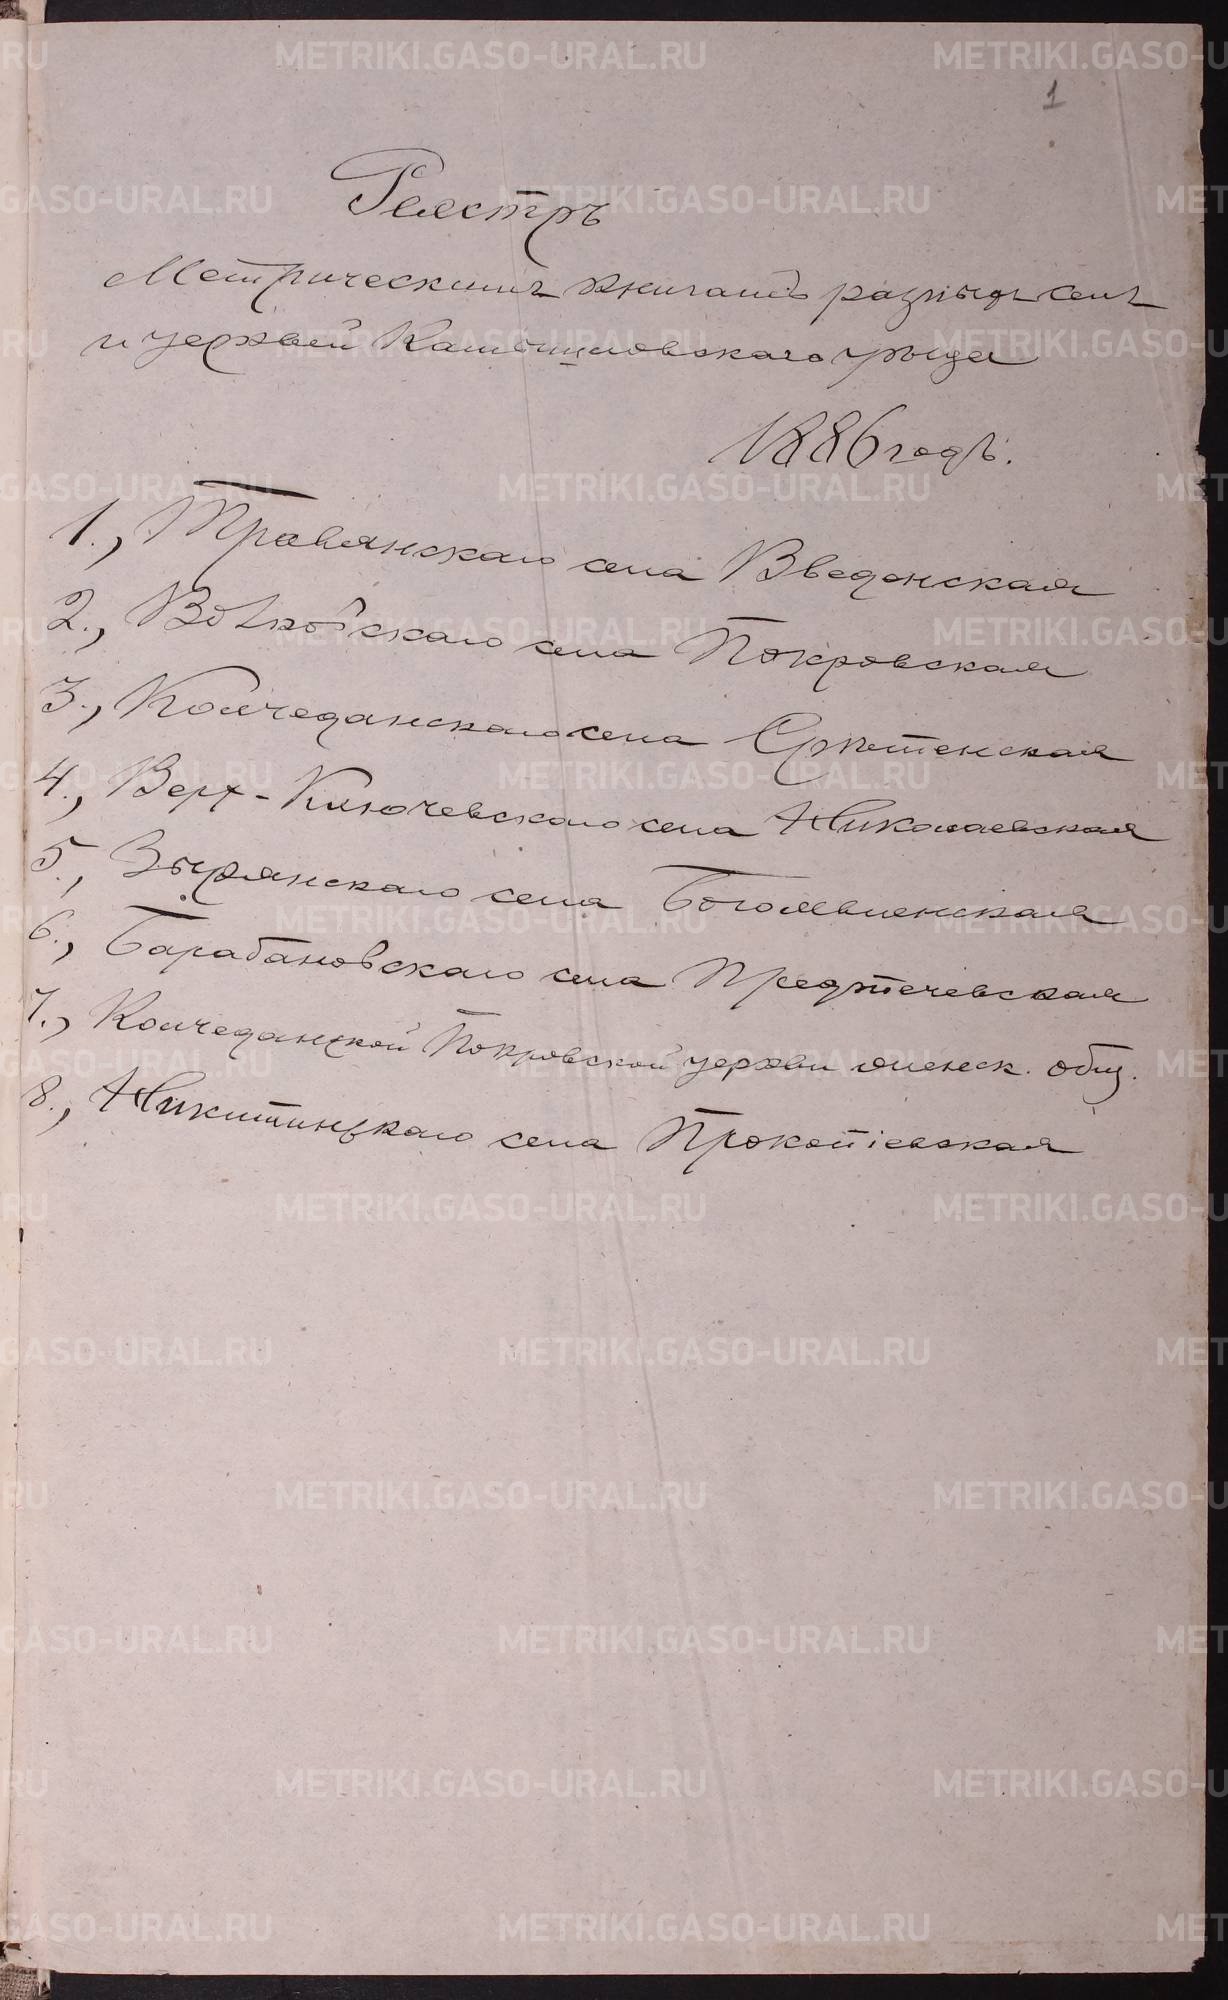 1
Реестръ
Метрическимъ книгамъ разныхъ селъ
и церквей Камышловскаго уѣзда
1886 годъ.
1., Травянскаго села Введенская
2., Волковскаго села Покровская
3., Колчеданскаго села Срѣтенская
4., Верх-Ключевскаго села Николаевская
5., Зырянскаго села Богоявленская
6., Барабановскаго села Предтечевская
7., Колчеданской Покровской церкви женск. общ.
8., Никитинскаго села Прокопіевская
METRIKI.GASO-URAL.RU